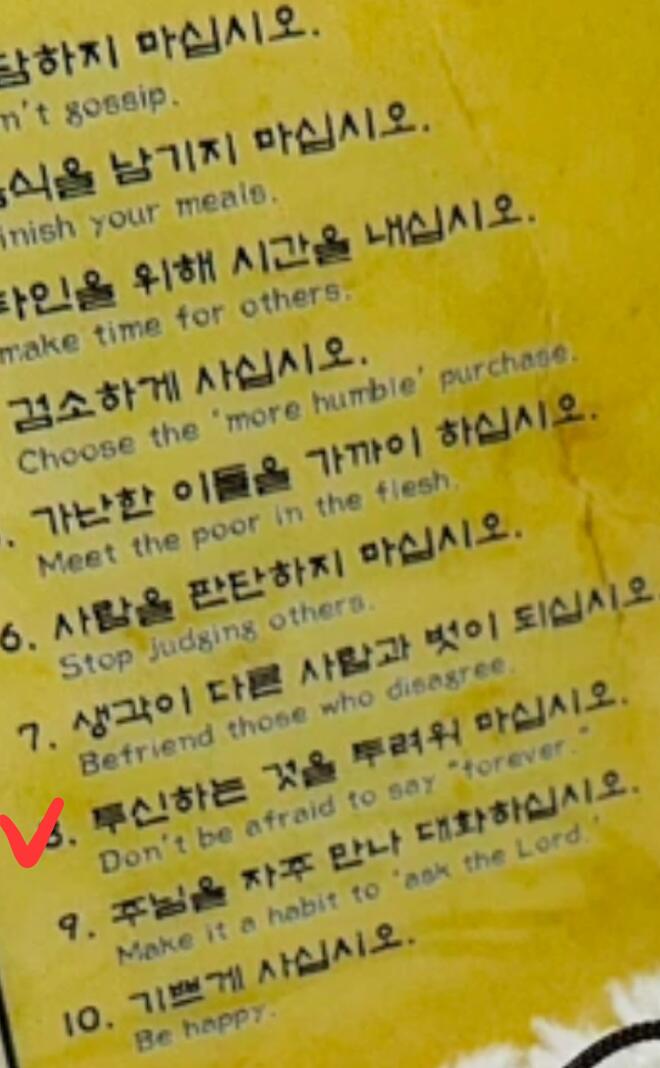 하지 마십시오.
gossip.
남기지 마십시오.
your meals.
위해 시간을 내십시오.
make time for others.
검소하게 사십시오.
Choose the 'more humble' purchase.
가난한 이들을 가까이 하십시오.
Meet the poor in the flesh.
6. 사람을 판단하지 마십시오.
Stop judging others.
7. 생각이 다른 사람과 벗이 되십시오.
Befriend those who disagree.
8. 투신하는 것을 두려워 마십시오.
Don't be afraid to say "forever."
9. 주님을 자주 만나 대화하십시오.
Make it a habit to 'ask the Lord.'
10. 기쁘게 사십시오.
Be happy.